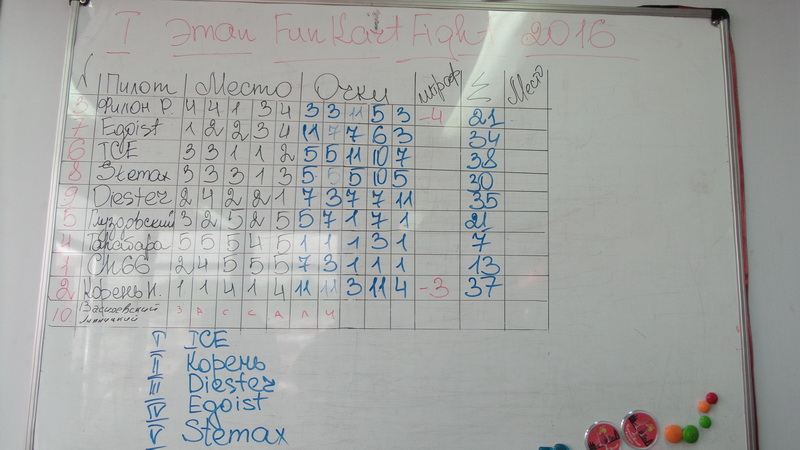 I Этап FunKartFight 2016
Пилот Место Очки штраф Σ Место
3 Филон Р. 4 4 1 3 4 3 3 11 5 3 -4 21
7 Egoist 1 2 2 3 4 11 7 7 6 3 34
6 ICE 3 3 1 1 2 5 5 11 10 7 38
8 Stemax 3 3 3 1 3 5 5 5 10 5 30
9 Diester 2 4 2 2 1 7 3 7 7 11 35
5 Глуздовский 3 2 5 2 5 5 7 1 7 1 21
4 5 5 5 4 5 1 1 1 3 1 7
1 СМ66 2 4 5 5 5 7 3 1 1 1 13
2 Корень И. 1 1 4 1 4 11 11 3 11 4 -3 37
10 З А С С А Л И
I ICE
II Корень
III Diester
IV Egoist
V Stemax